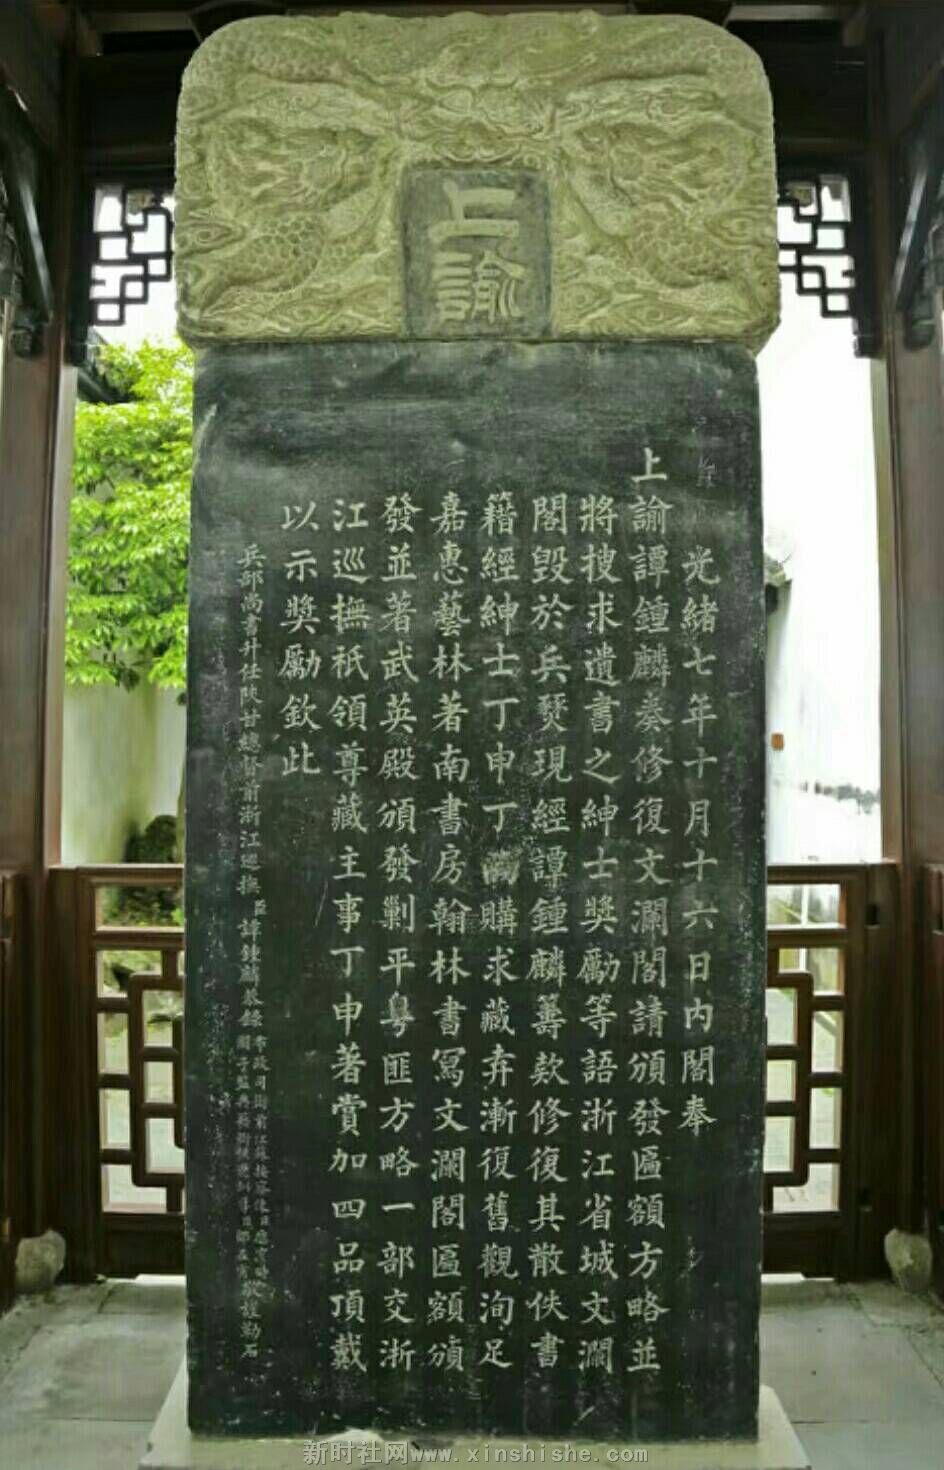 上諭
光緒七年十月十六日内閣奉
上諭譚鍾麟奏修復文瀾閣請頒發匾額方略並
將搜求遺書之紳士獎勵等語浙江省城文瀾
閣毀於兵燹現經譚鍾麟籌款修復其散佚書
籍經紳士丁申丁購求藏弆漸復舊觀洵足
嘉惠藝林著南書房翰林書寫文瀾閣匾額頒
發並著武英殿頒發剿平粤匪方略一部交浙
江巡撫祇領尊藏主事丁申著賞加四品頂戴
以示獎勵欽此
兵部尚書升任陝甘總督前浙江巡撫臣譚鍾麟恭錄
勒石
新时社网www.xinshishe.com